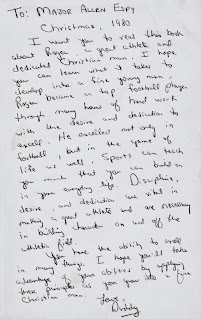 To: Major Allen Espy
Christmas, 1980
I want you to read this book
about Roger, a great athlete and
dedicated Christian man. I hope
you can learn what it takes to
develop into a fine young man.
Roger became a top football player
through many hours of hard work
with the desire and dedication to
excell. He excelled not only in
football, but in the game of
life as well. Sports can teach
you much that you can build on
in your everyday life. Discipline,
desire, and dedication are vital in
making a good athlete and are necessary
in building character on and off the
athletic field.
You have the ability to excel
in many things. I hope you'll take
advantage of your abilities by applying
these principles as you grow into a fine
Christian man.
Love,